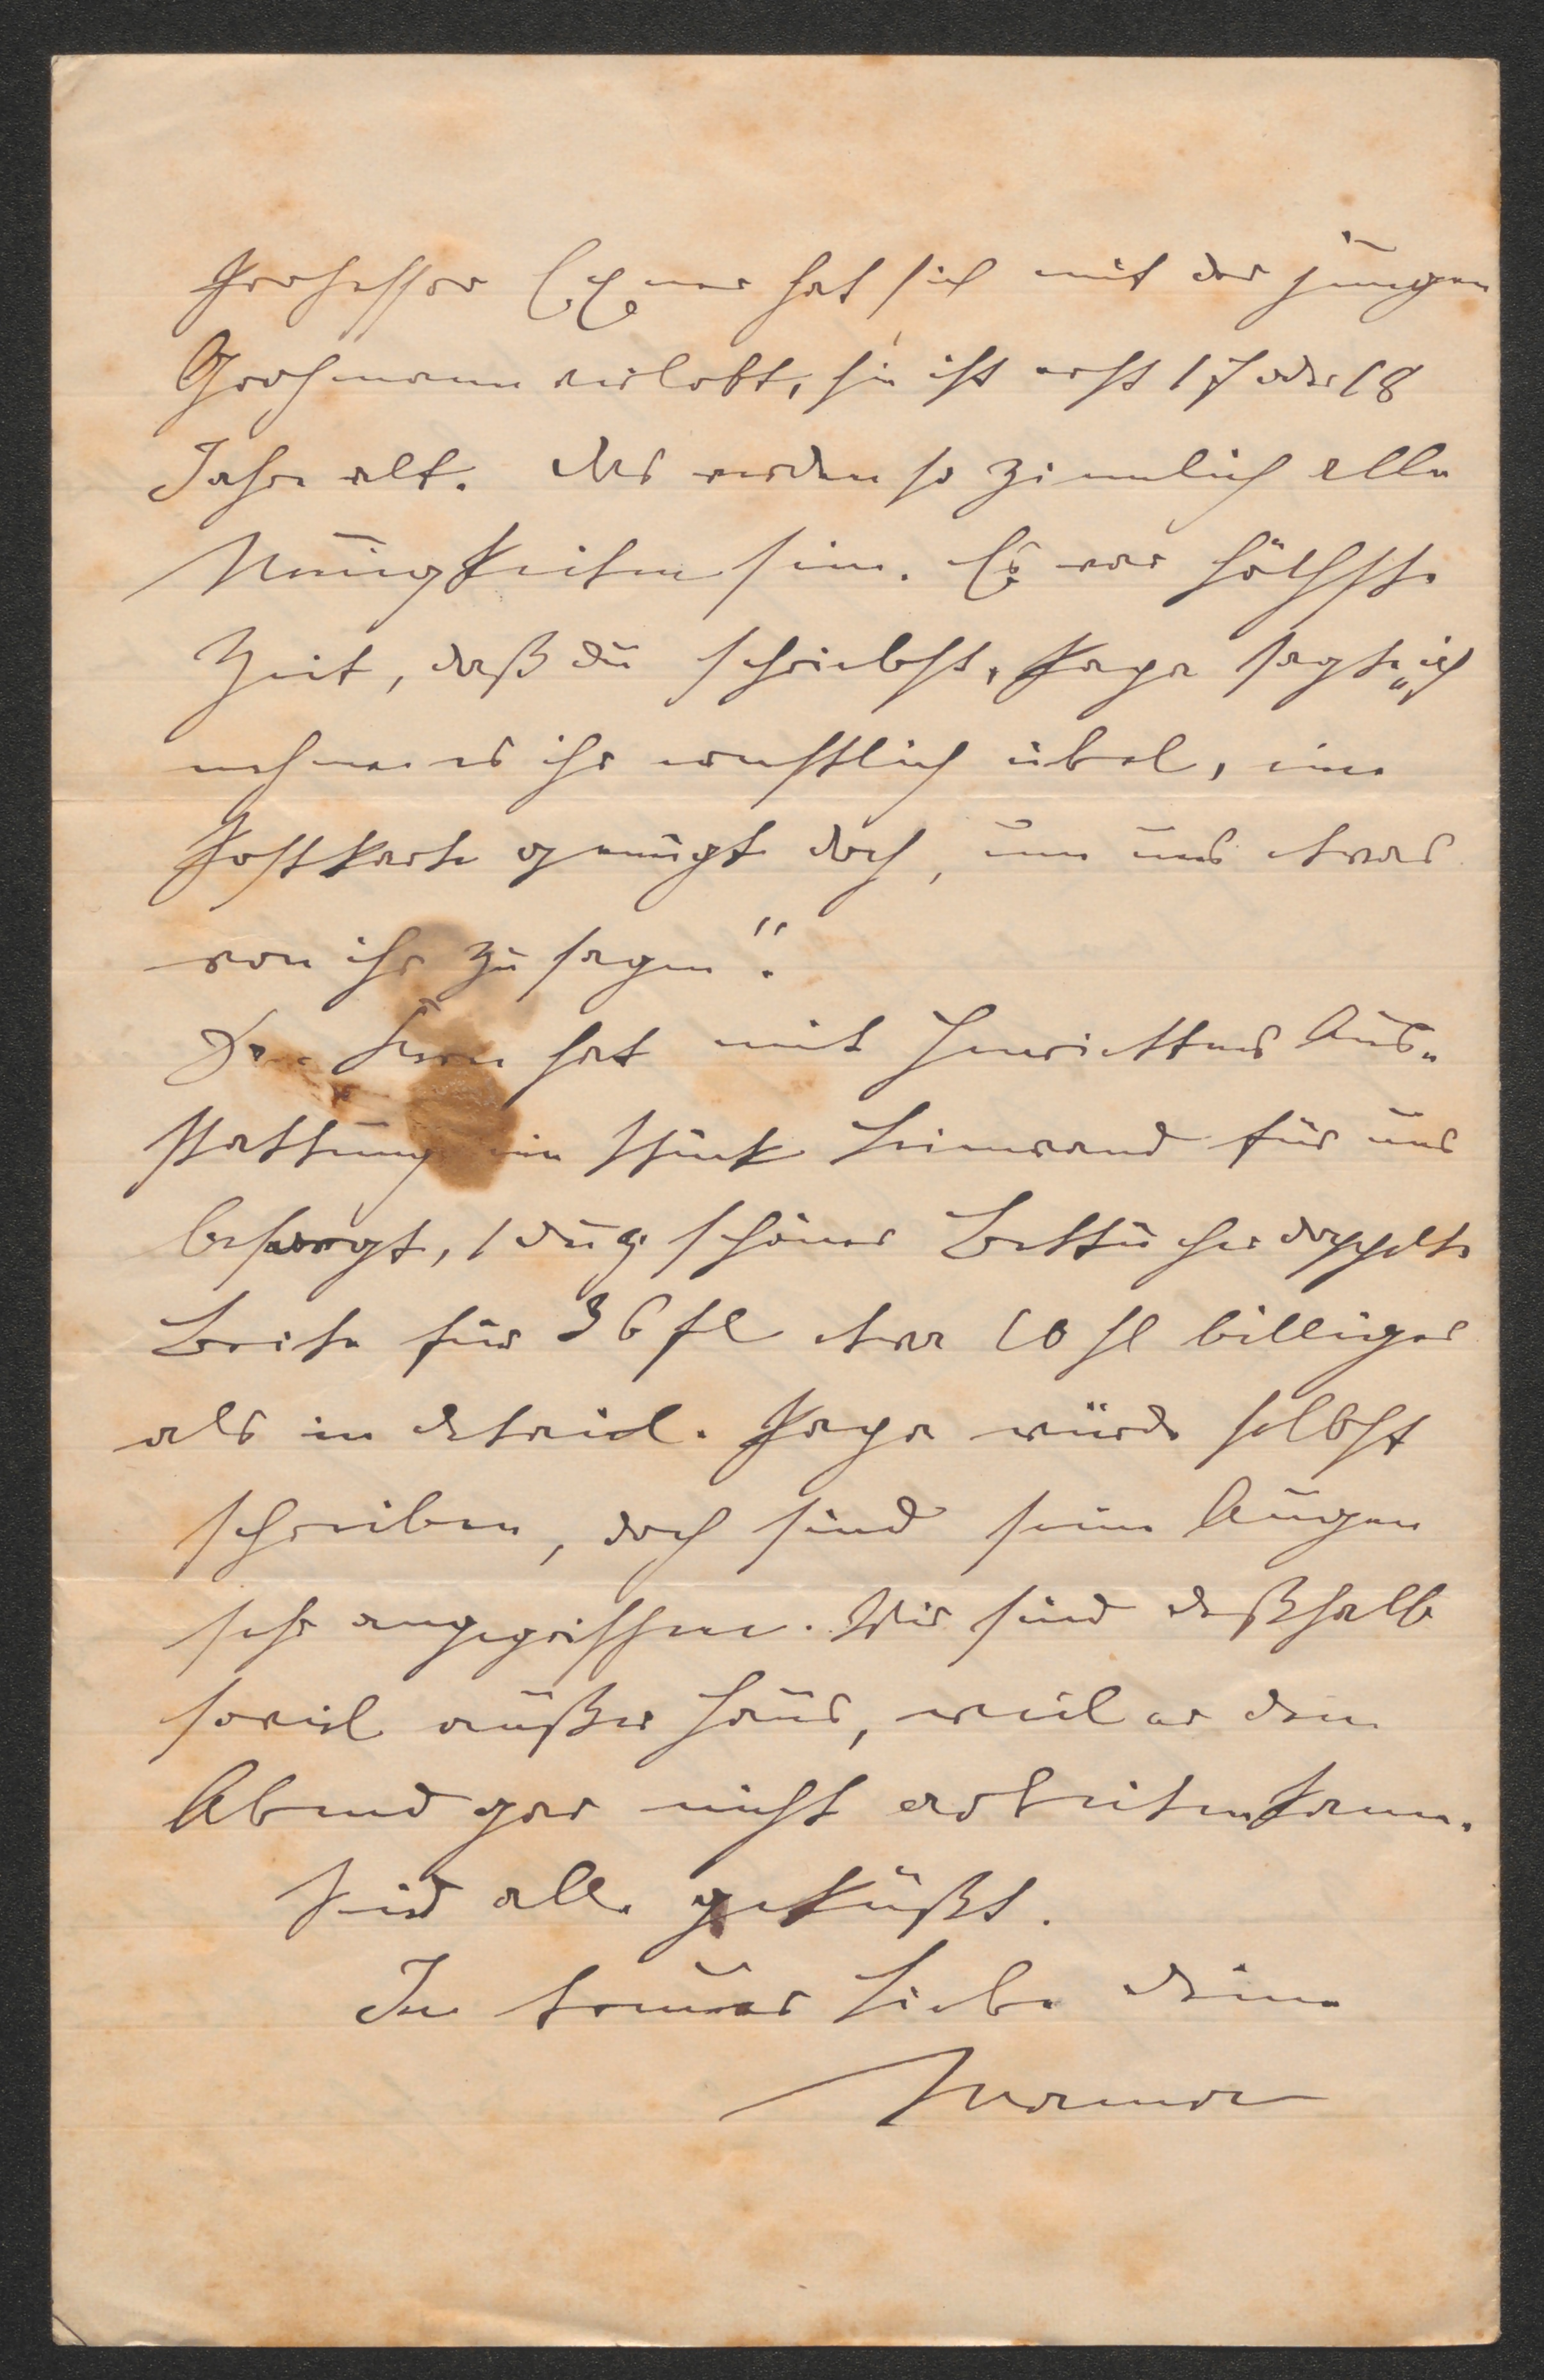 Professor Exner hat sich mit der jungen
Grohmann verlobt, sie ist erst 17 oder 18
Jahre alt. Das werden so ziemlich alle
Neuigkeiten sein. Es war höchste
Zeit, daß du schriebst, Papa sagte „ich
nehme es ihr ernstlich übel, eine
Postkarte genügt doch, um uns etwas
von ihr zu sagen".
Fr. hat mit Henriettens Aus-
stattung ein Stück Leinwand für uns
besorgt, 1 duz. schöner Bettücher doppelte
Breite für 36 fl etwa 10 fl billiger
als in detail. Papa würde selbst
schreiben, doch sind seine Augen
sehr angegriffen. Wir sind deßhalb
soviel außer Haus, weil er den
Abend gar nicht arbeiten kann.
Seid alle geküßt.
In treuer Liebe deine
Mama